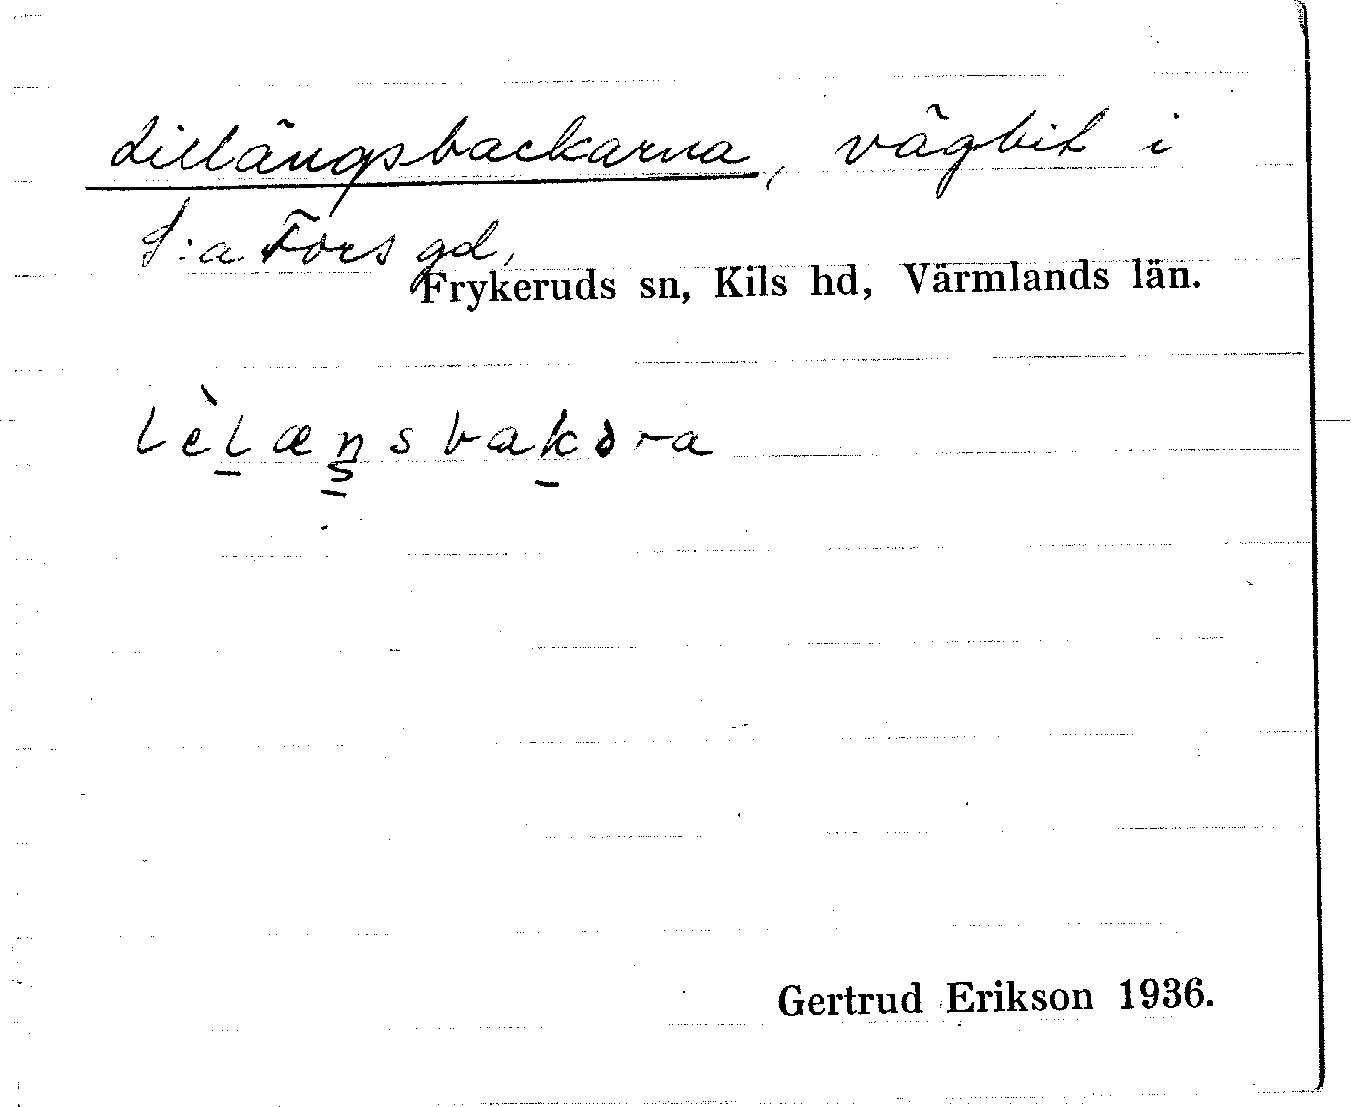 Lillängsbackarna, vägbit i
S:a Fors gd,
Frykeruds sn, Kils hd, Värmlands län.
lèl̠æn̠sbak̠əra
Gertrud Erikson 1936.